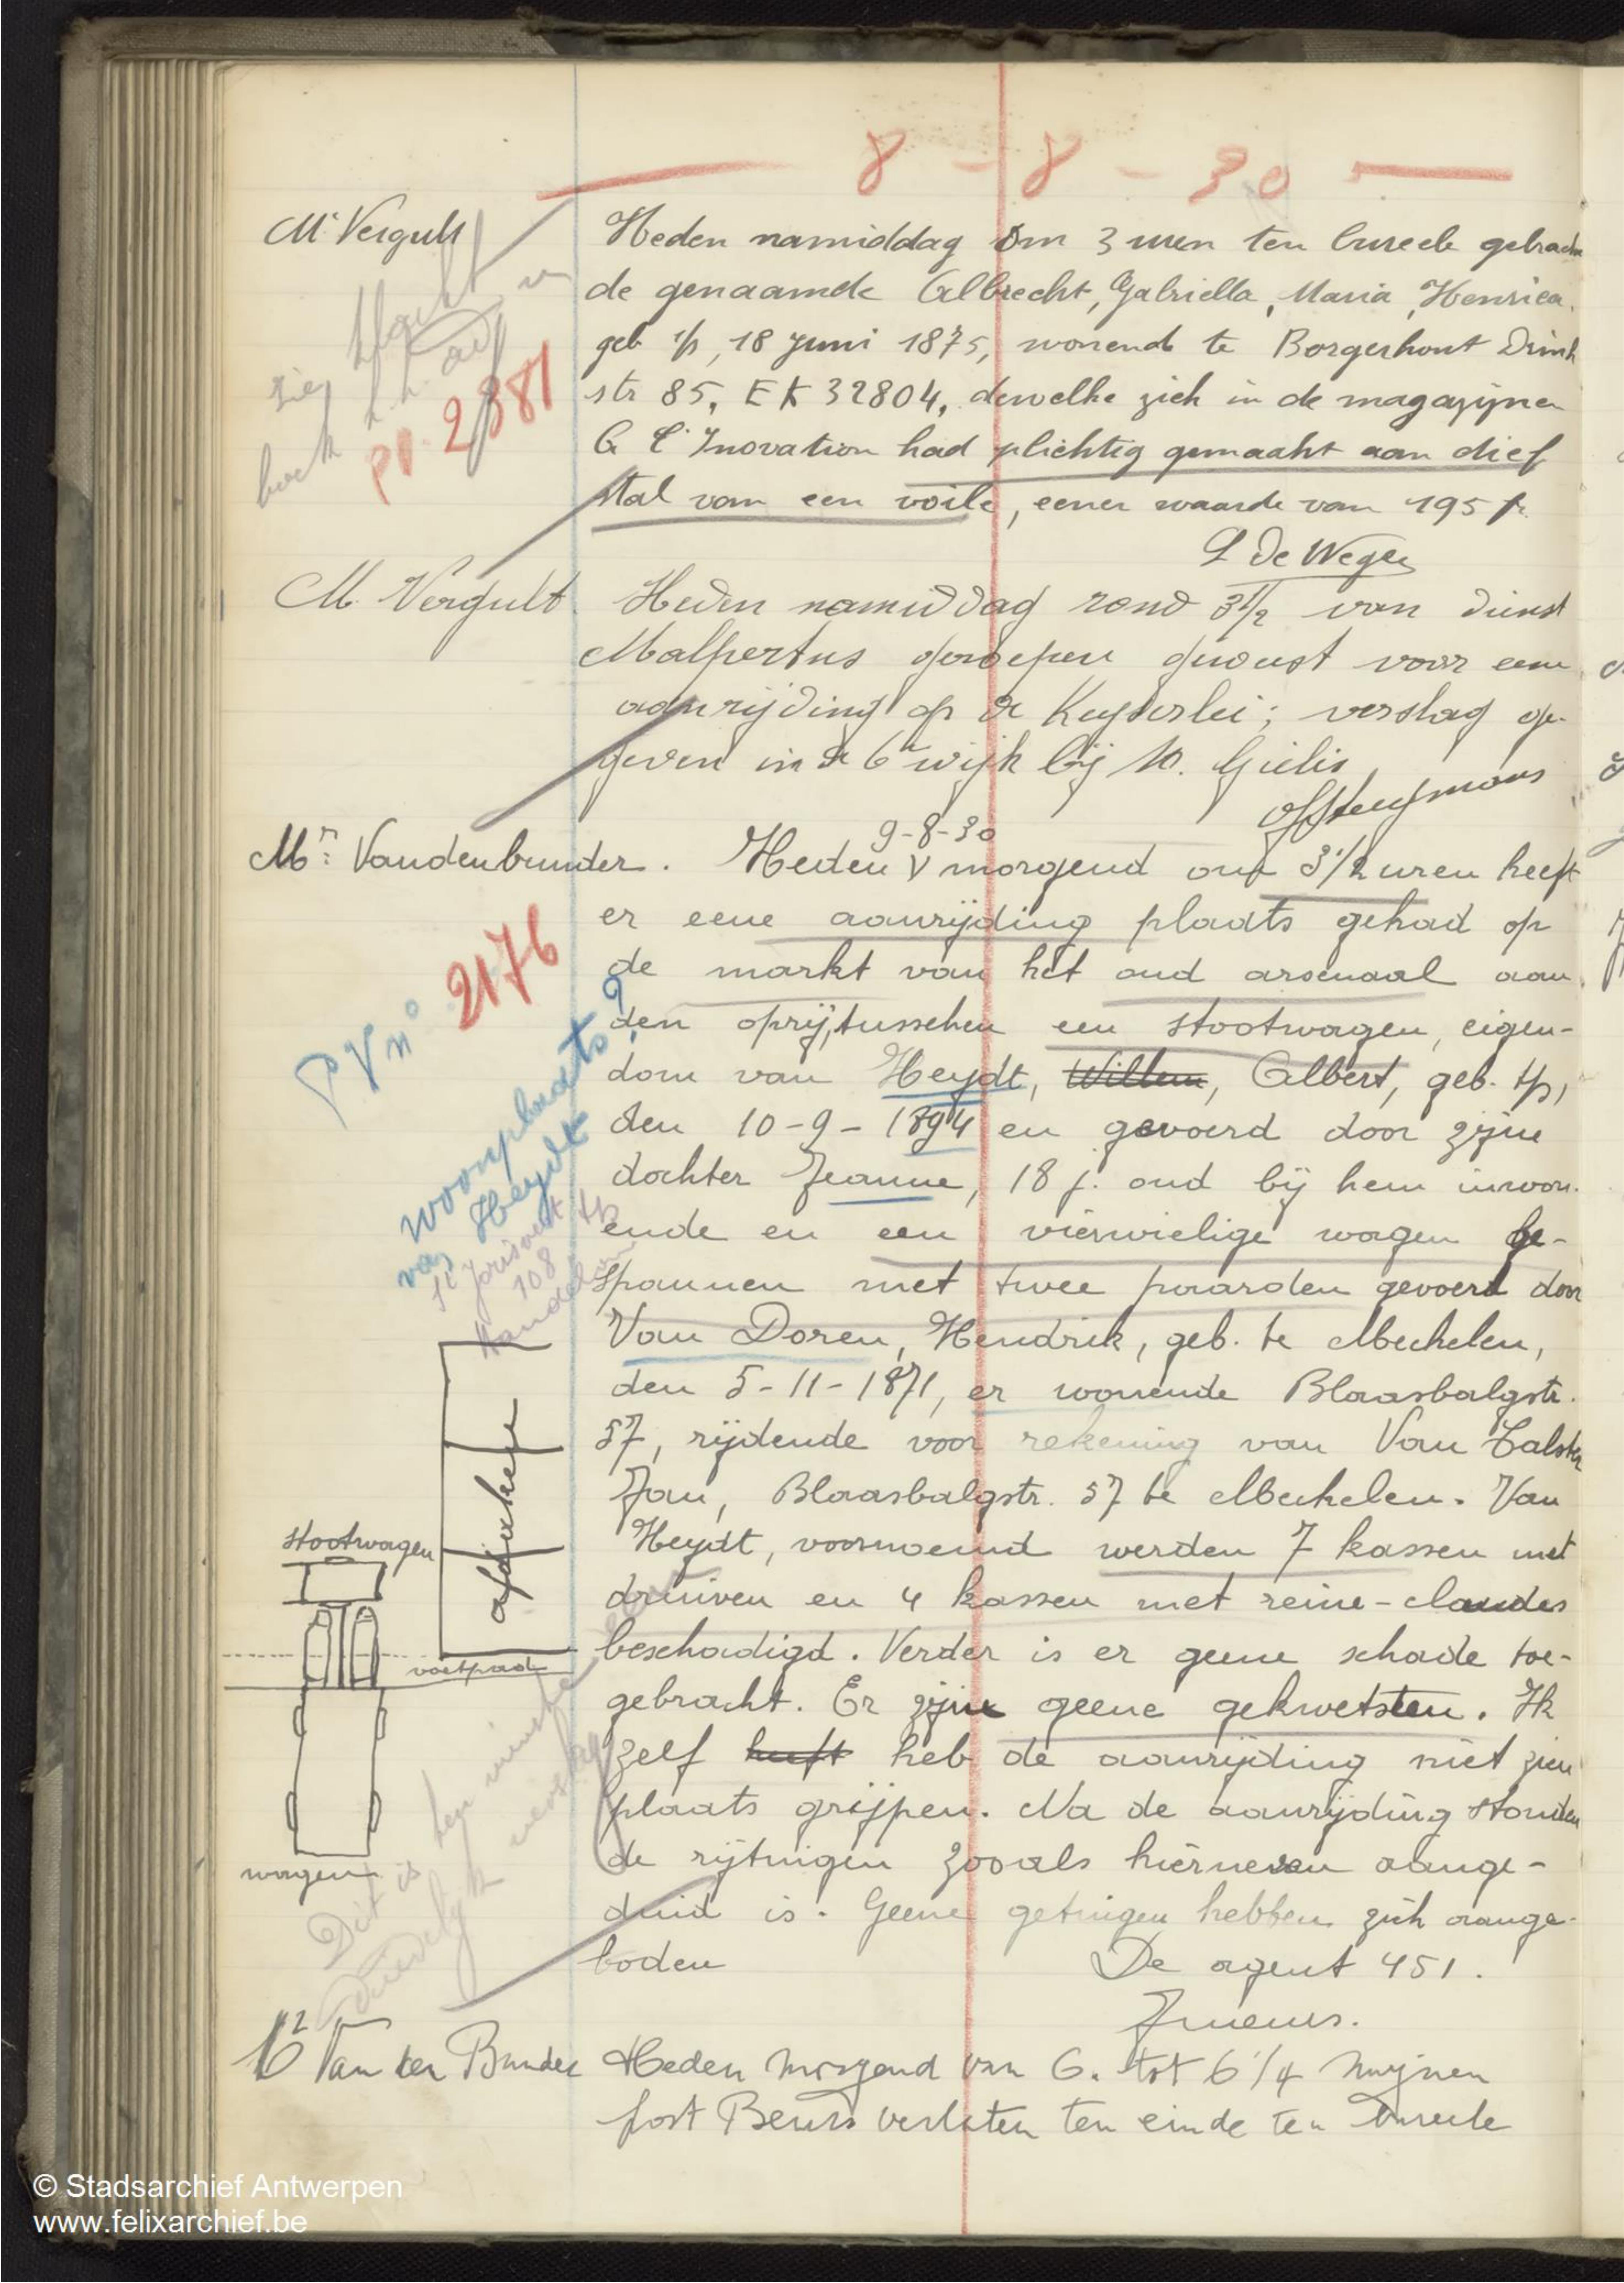 8 - 8 - 30
Mr Vergult
Heden namiddag om 3 uren ten bureele gebracht
de genaamde Albrecht, Gabriella, Maria, Henrica.
geb t/p, 18 Juni 1875, wonend te Borgerhout Drink
str 85, EK 32804, dewelke zich in de magazijnen
A l'Inovation had plichtig gemaakt aan dief
stal van een voile, eener waarde van 195 fr.
L De Weger
zie
boek
PV. 2881
M. Vergult
Heden namiddag rond 3 1/2 van dienst
Malpertus geroepen geweest voor eene
aanrijding op de Keyserlei; verslag ge-
geven in de 6e wijk bij M. Gielis
Mr: Vandenbunder.
9-8-30
Heden V morgend om 3 1/2 uren heeft
er eene aanrijding plaats gehad op
de markt van het oud arsenaal aan
den oprij, tusschen een stootwagen, eigen-
dom van Heydt, Willem, Albert, geb. t/p,
den 10-9-1894 en gevoerd door zijne
dochter Jeanne, 18 j. oud bij hem inwon-
ende en een vierwielige wagen be-
spannen met twee paarden gevoerd door
Van Doren, Hendrik, geb. te Mechelen,
den 5-11-1871, er wonende Blaasbalgstr.
57, rijdende voor rekening van Van Calster
Jan, Blaasbalgstr. 57 te Mechelen. Van
Heydt, voornoemd werden 7 kassen met
druiven en 4 kassen met reine-claudes
beschadigd. Verder is er geene schade toe-
gebracht. Er zijne geene gekwetsten. Ik
zelf heeft heb de aanrijding niet zien
plaats grijpen. Na de aanrijding stonden
de rijtuigen zooals hierneven aange-
duid is. Geene getuigen hebben zich aange-
boden
De agent 451.
PV no 2176
woonplaats?
van Heydt
St Jorisvest t/p
108
Handelaar
afdakens
stootwagen
voetpad
wagen
Dit is ten minste een
duidelijk verslag
Van den Bunder
Heden morgend van 6. tot 6 1/4 mijnen
post Beurs verlaten ten einde ten bureele
© Stadsarchief Antwerpen
www.felixarchief.be